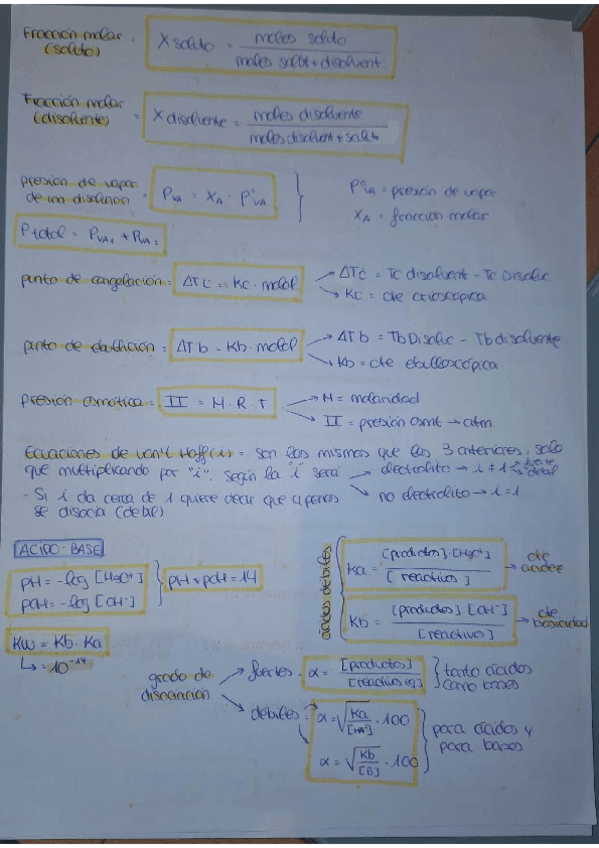 Fracción molar (soluto) = X soluto = moles soluto / moles solut + disolvent.
Fracción molar (disolvente) = X disolvente = moles disolvente / moles disolvent + solut.
presión de vapor de una disolución = PVA = XA · P°VA
P°VA = presión de vapor
XA = fracción molar
Ptotal = PVA1 + PVA2
punto de congelación = ΔTc = Kc · molal
→ ΔTc = Tc disolvent - Tc Disoluc.
→ Kc = cte crioscópica
punto de ebullición = ΔTb = Kb · molal
→ ΔTb = Tb Disoluc - Tb disolvente
→ Kb = cte ebulloscópica
presión osmótica = II = M · R · T
→ M = molaridad
→ II = presión osmt → atm.
Ecuaciones de van't Hoff (i) = son las mismas que las 3 anteriores, solo
que multiplicando por "i". Según la "i" será
→ electrolito → i ≠ 1 fuerte debil
→ no electrolito → i = 1
- Si i da cerca de 1 quiere decir que apenas
se disocia (debil)
ACIDO-BASE
pH = -log [H3O+]
pOH = -log [OH-]
pH + pOH = 14
Kw = Kb · Ka
↳ = 10^-14
ácidos débiles
Ka = [productos] · [H3O+] / [reactivos] → cte acidez
Kb = [productos] [OH-] / [reactivos] → cte basicidad
grado de disociación
→ fuertes · α = [productos] / [reactivos] } tanto ácidos como bases
→ débiles = α = √Ka/[HA] · 100
α = √Kb/[B] · 100
} para ácidos y para bases